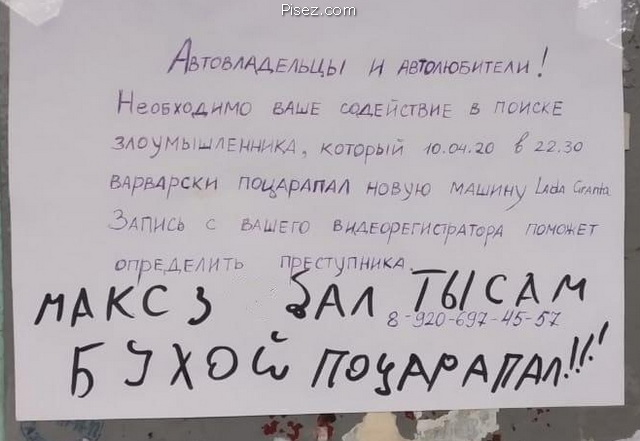 Pisez.com
Автовладельцы и автолюбители!
Необходимо ваше содействие в поиске
злоумышленника, который 10.04.20 в 22.30
варварски поцарапал новую машину Lada Granta
Запись с вашего видеорегистратора поможет
определить преступника.
МАКС З БАЛ ТЫ САМ
8-920-697-45-57
БУХОЙ ПОЦАРАПАЛ!!!!